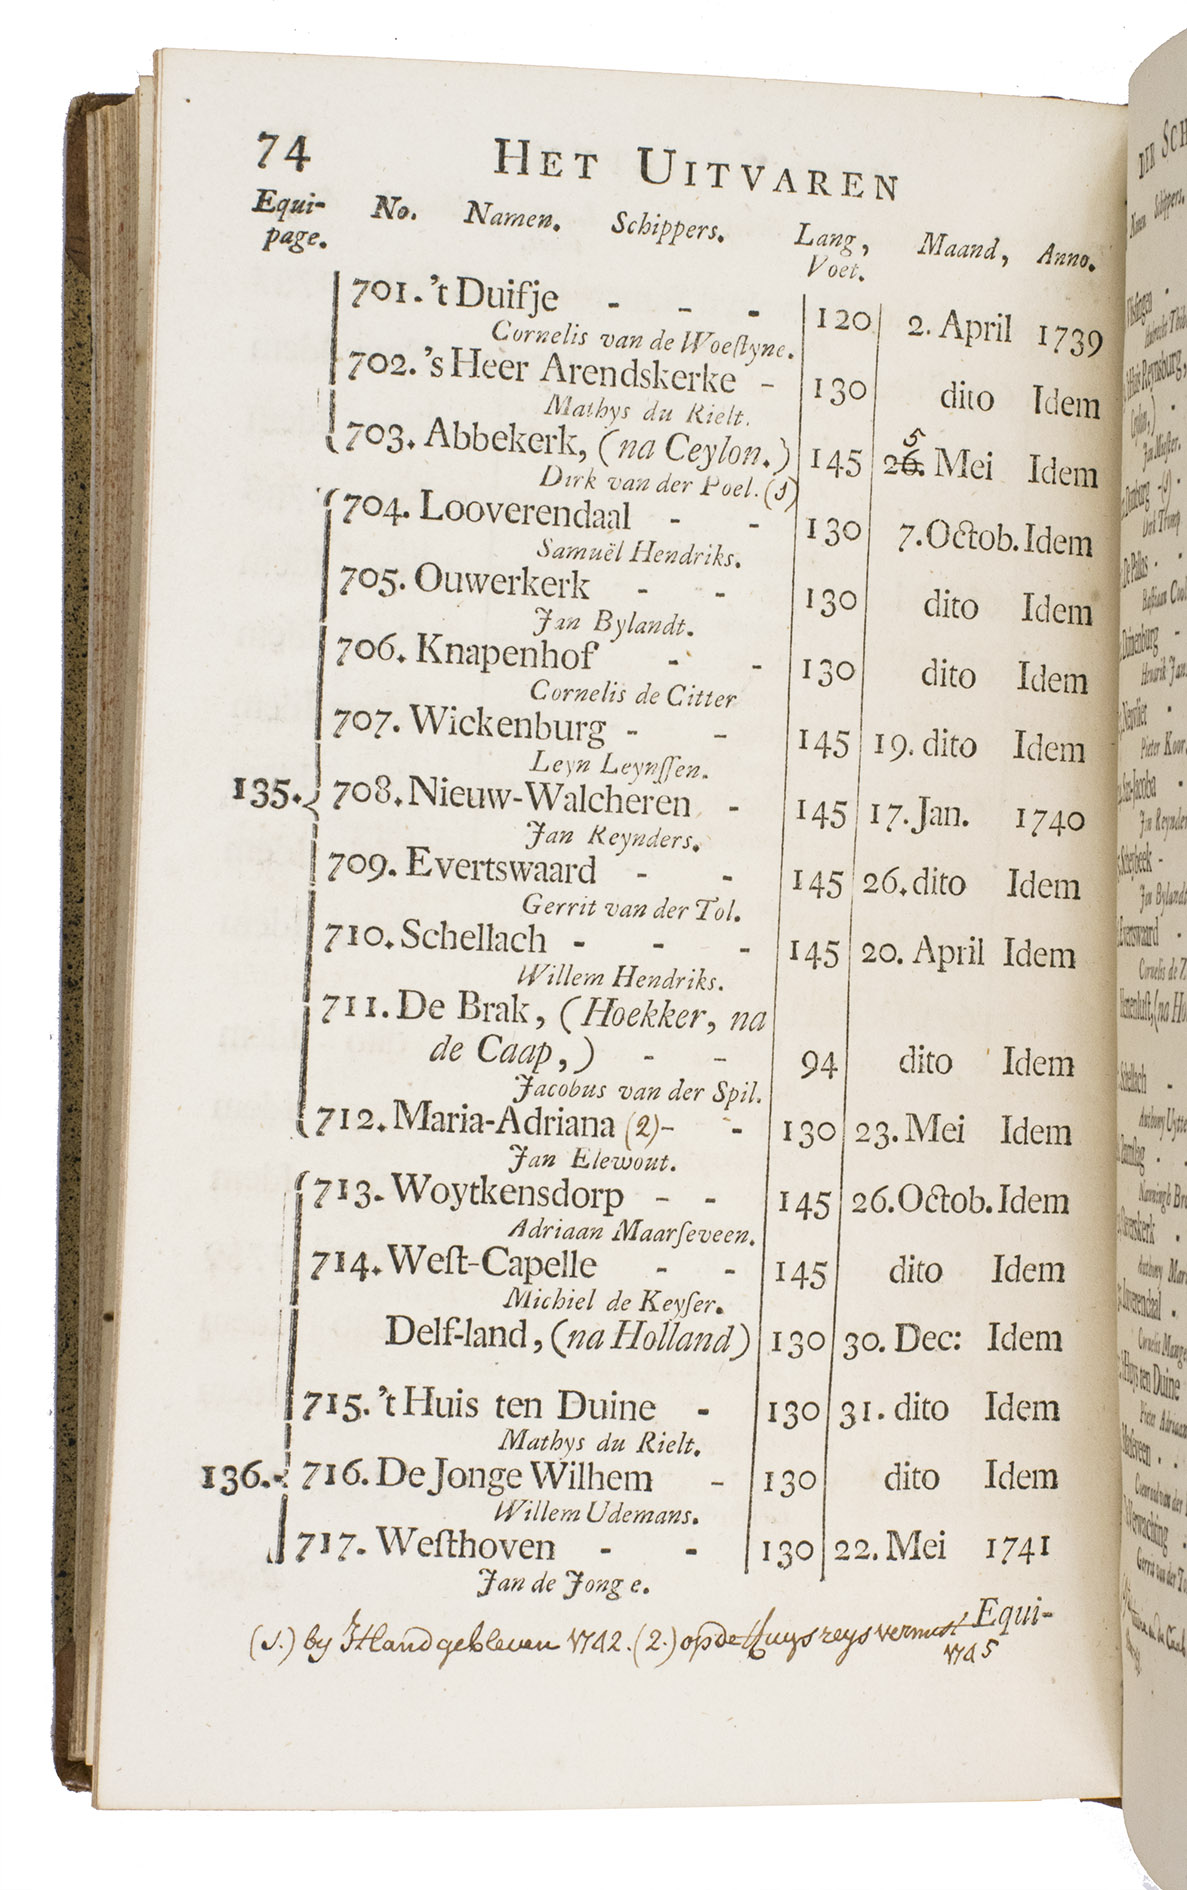 74 HET UITVAREN
Equi- No. Namen. Schippers. Lang, Maand, Anno.
page. Voet.
701. 't Duifje - - - 120 2. April 1739
Cornelis van de Woeſtyne.
702. 's Heer Arendskerke - 130 dito Idem
Mathys du Rielt.
703. Abbekerk, (na Ceylon.) 145 26. 5 Mei Idem
Dirk van der Poel. (1)
704. Looverendaal - - 130 7. Octob. Idem
Samuël Hendriks.
705. Ouwerkerk - - 130 dito Idem
Jan Bylandt.
706. Knapenhof - - 130 dito Idem
Cornelis de Citter
707. Wickenburg - - 145 19. dito Idem
Leyn Leynſſen.
135. 708. Nieuw-Walcheren - 145 17. Jan. 1740
Jan Reynders.
709. Evertswaard - - 145 26. dito Idem
Gerrit van der Tol.
710. Schellach - - - 145 20. April Idem
Willem Hendriks.
711. De Brak, (Hoekker, na
de Caap,) - - 94 dito Idem
Jacobus van der Spil.
712. Maria-Adriana (2) - - 130 23. Mei Idem
Jan Elewout.
713. Woytkensdorp - - 145 26. Octob. Idem
Adriaan Maarſeveen.
714. Weſt-Capelle - - 145 dito Idem
Michiel de Keyſer.
Delf-land, (na Holland) 130 30. Dec: Idem
715. 't Huis ten Duine - 130 31. dito Idem
Mathys du Rielt.
136. 716. De Jonge Wilhem - 130 dito Idem
Willem Udemans.
717. Weſthoven - - 130 22. Mei 1741
Jan de Jonge.
Equi-
(1.) by Itland gebleven 1742. (2.) op de Huys reys vermist
1745